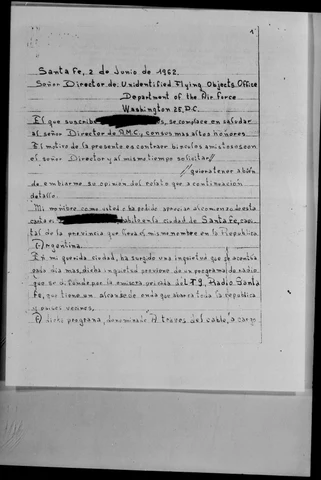 1
Santa Fe, 2 de Junio de 1962.
Señor Director de: Unidentified Flying Objects Office
Department of the Air Force
Washington 25, D.C.
El que suscribe se complace en saludar
al señor Director de A.M.C., con sus mas altos honores
El motivo de la presente es contraer vinculos amistosos con
el señor Director y al mismo tiempo solicitar
quiera tener a bién
de embiarme su opinión del relato que a continuación
detallo.
Mi nombre como usted ha podido apreciar al comenzo de esta
carta es habito en la ciudad de Santa Fe, capi
tal de la provincia que lleva el mismo nombre en la Republica
Argentina.
En mi querida ciudad, ha surgido una inquietud que se acentúa
paso dia mas, dicha inquietud proviene de un programa de radio
que se difunde por la emisora Radio Santa
Fe, que tiene un alcance de onda que abarca toda la republica
y paises vecinos.
A dicho programa, denominado "A traves del cablo", a cargo